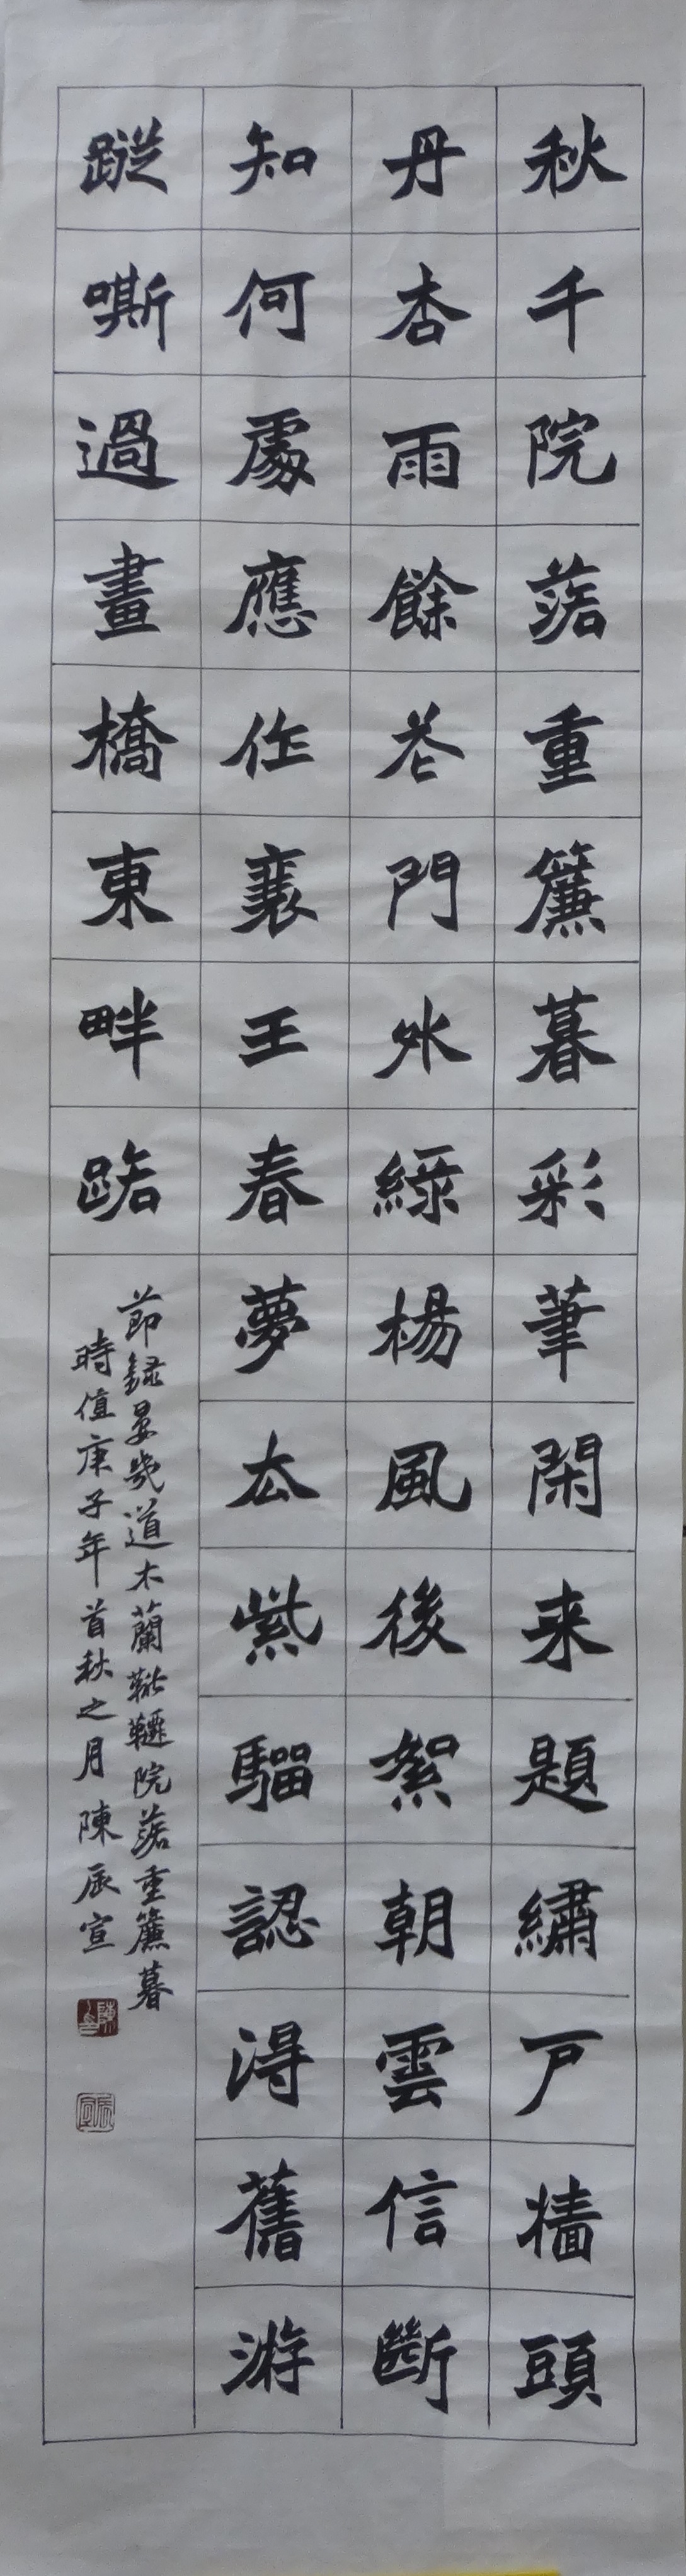 秋千院落重簾暮彩筆閑来題繡戶墻頭
丹杏雨餘花門外綠楊風後絮朝雲信斷
知何處應作襄王春夢去紫騮認得舊游
蹤嘶過畫橋東畔路
節録晏幾道木蘭鞦韆院落重簾暮
時值庚子年首秋之月 陳辰宣